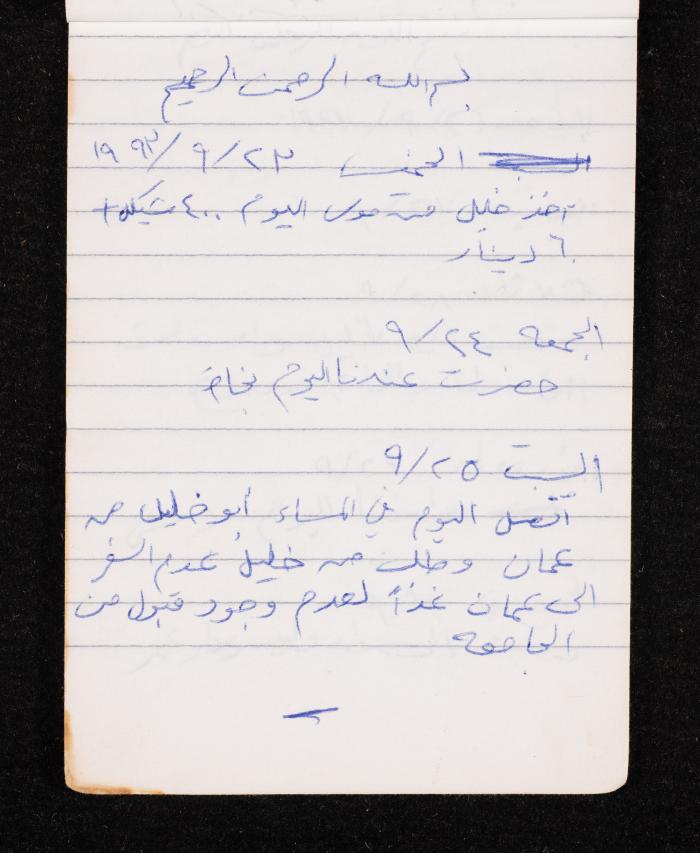 بسم الله الرحمن الرحيم
الخميس ٢٣/٩/١٩٩٣
أخذ خليل من موسى اليوم ٤٠٠ شيكل +
٦٠ دينار
الجمعه ٢٤/٩
حضرت عندنا اليوم نجاح
السبت ٢٥/٩
اتصل اليوم في المساء أبو خليل من
عمان وطلب من خليل عدم السفر
الى عمان غداً لعدم وجود قبول من
الجامعه